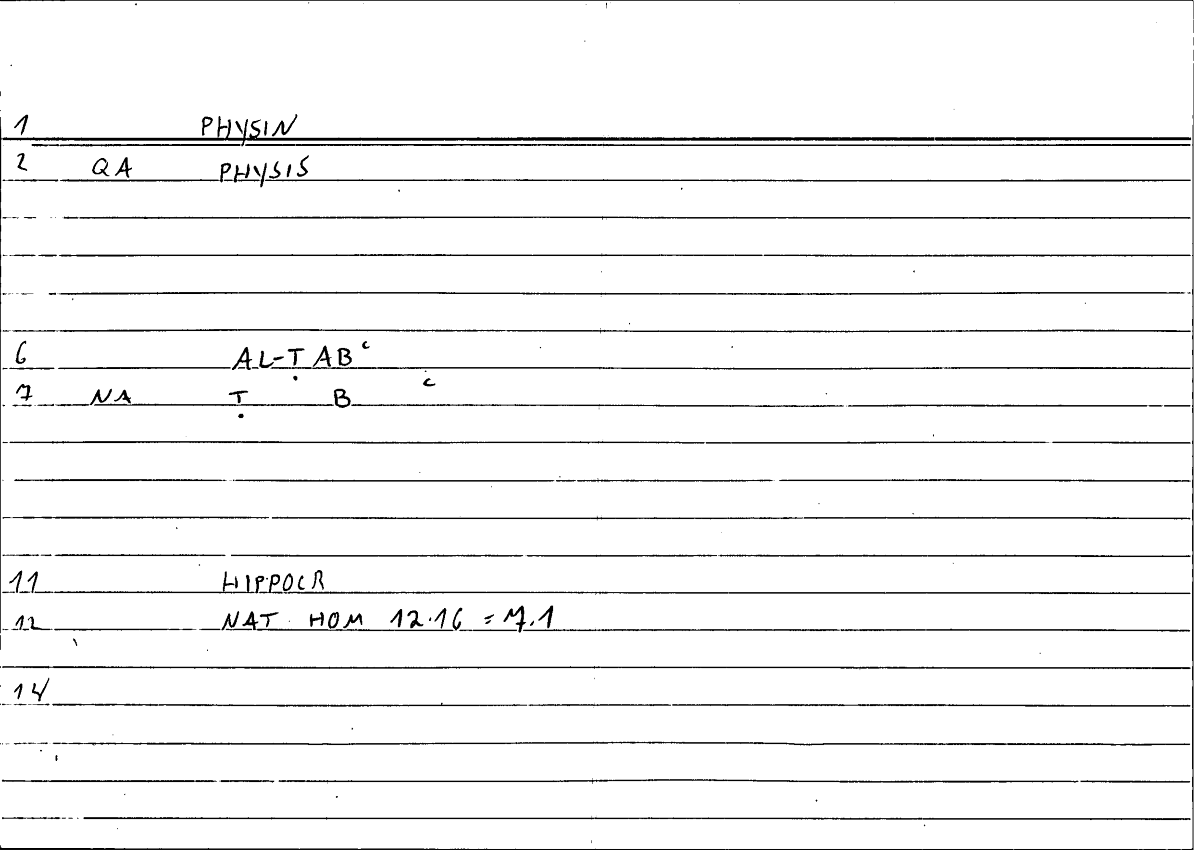 1 PHYSIN
2 QA PHYSIS
6 AL-ṬABʿ
7 NA Ṭ B ʿ
11 HIPPOCR
12 NAT HOM 12.16 = 7.1
14